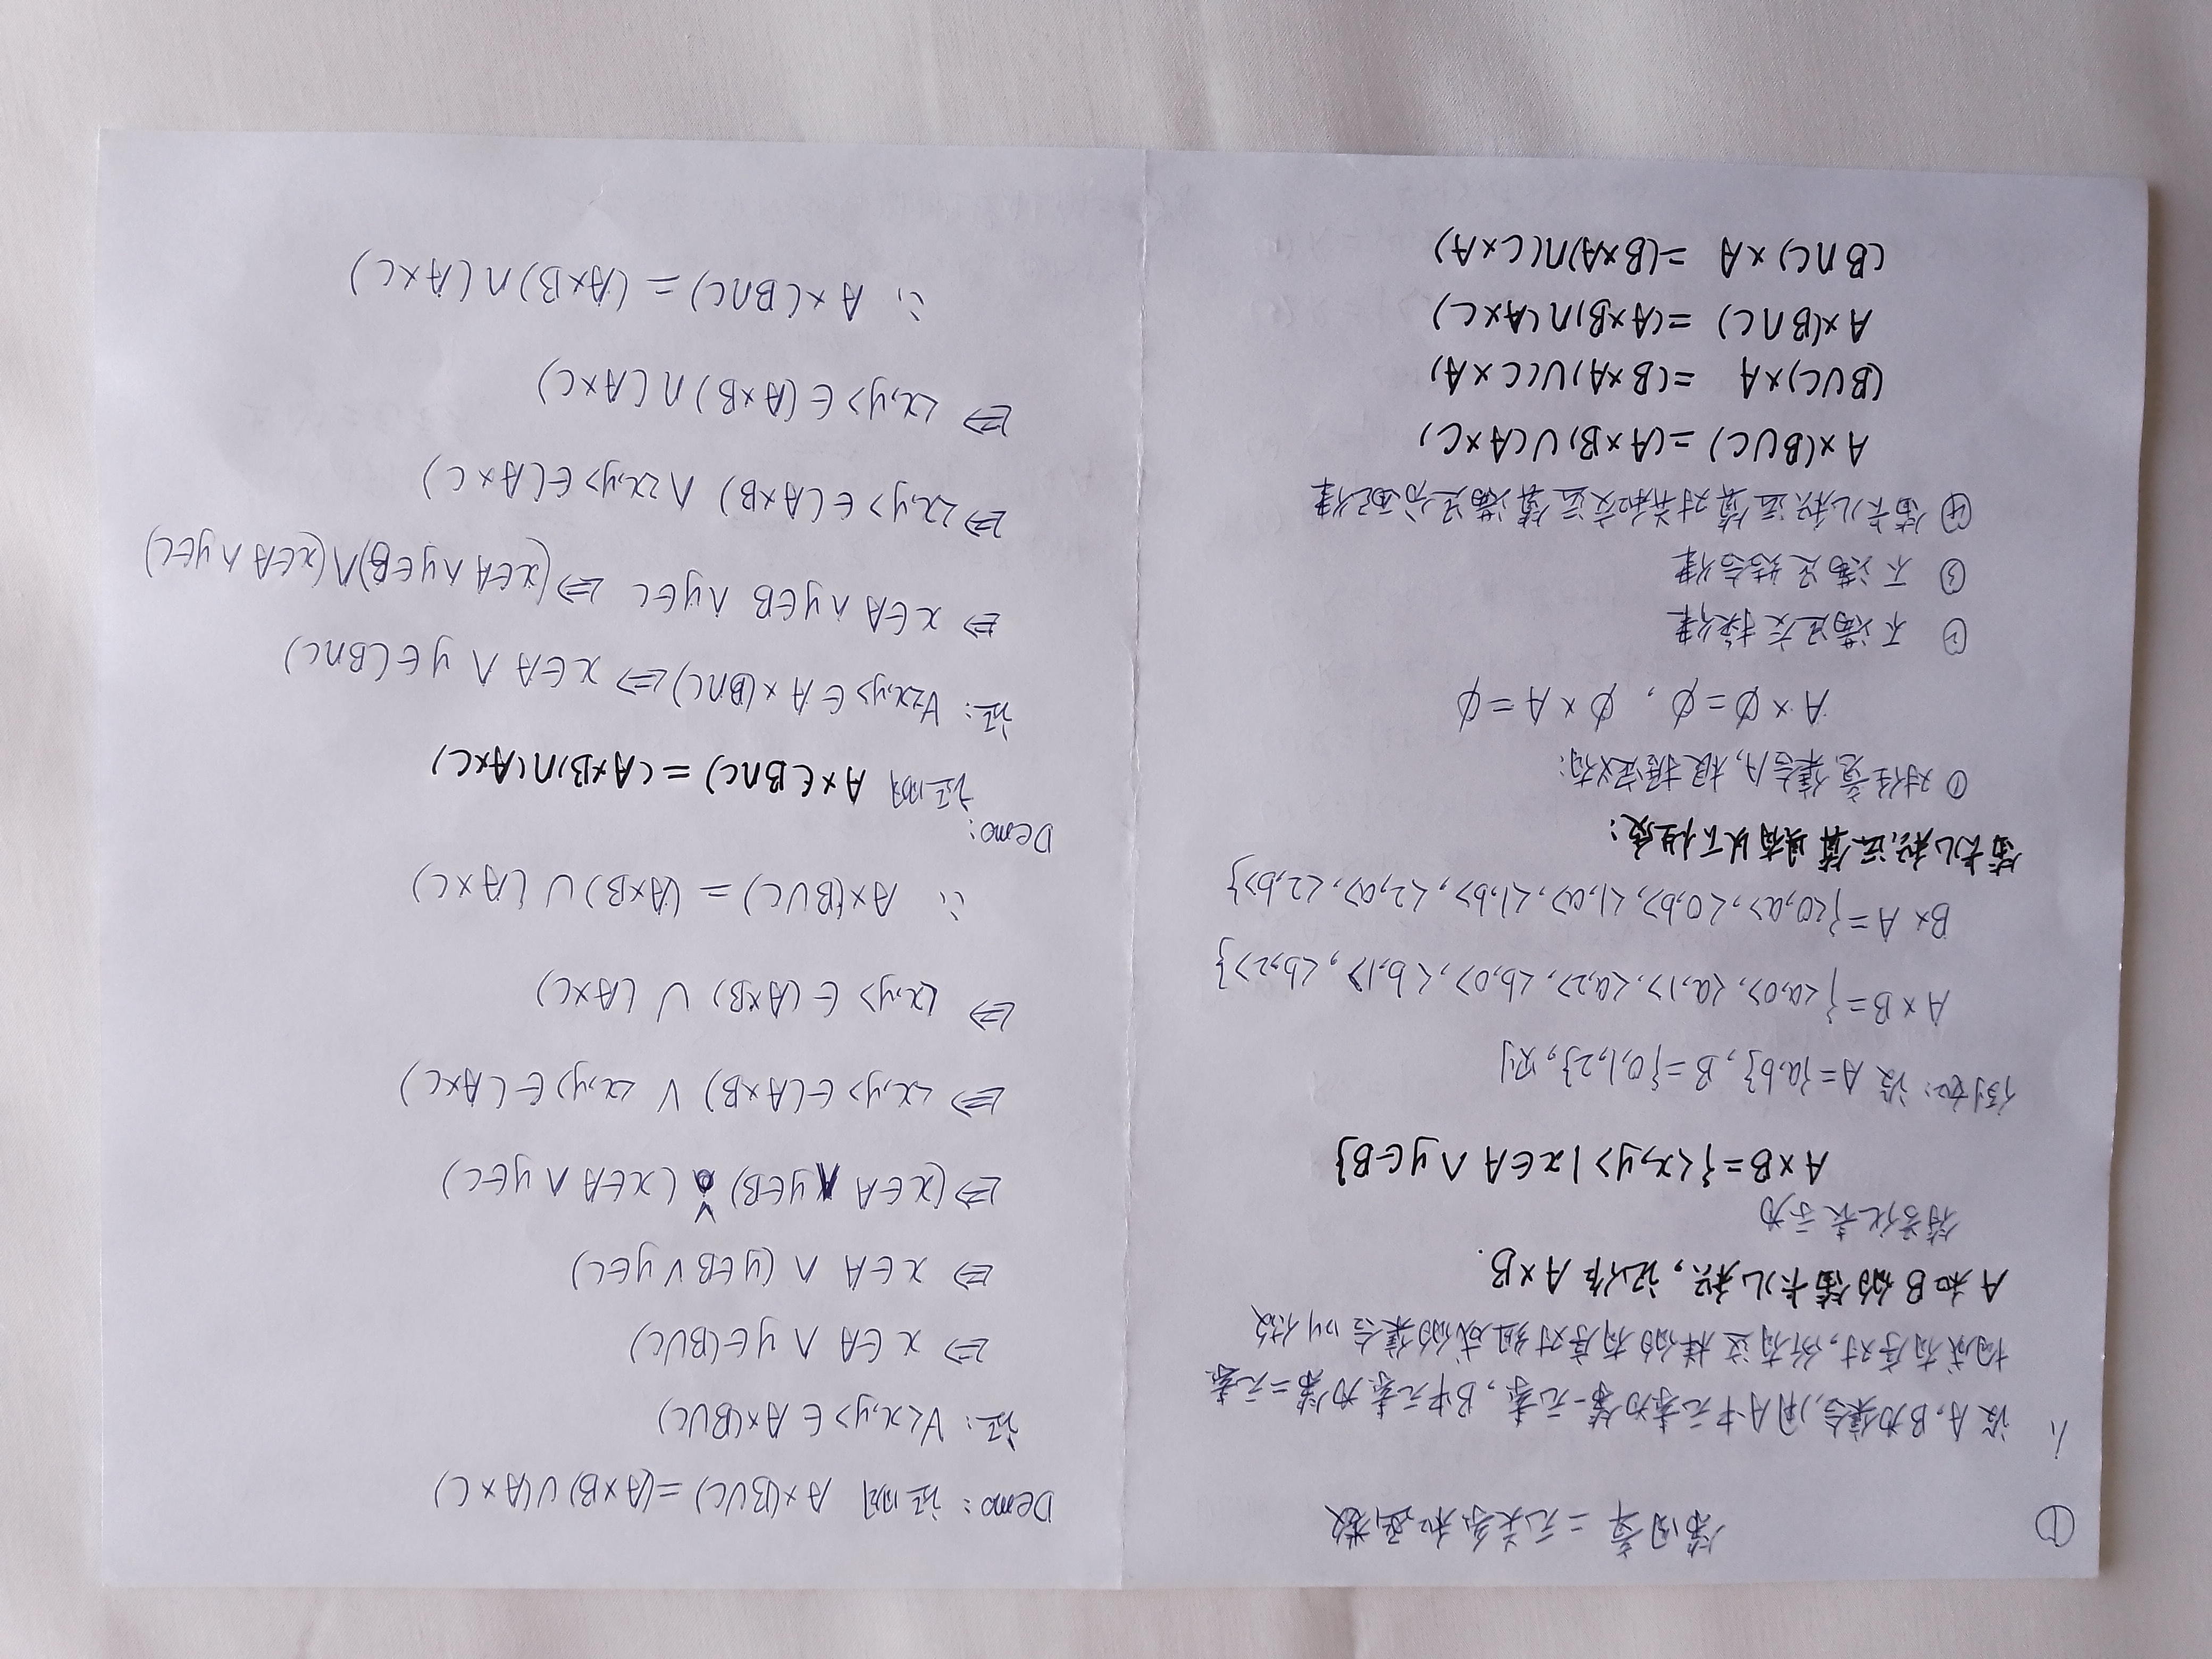 ①
第四章 二元关系和函数
1、
设A,B为集合,用A中元素为第一元素,B中元素为第二元素
构成有序对,所有这样的有序对组成的集合叫做
A和B的笛卡儿积,记作A×B.
符号化表示为
A×B={<x,y>|x∈A∧y∈B}
例如:设A={a,b},B={0,1,2},则
A×B={<a,0>,<a,1>,<a,2>,<b,0>,<b,1>,<b,2>}
B×A={<0,a>,<0,b>,<1,a>,<1,b>,<2,a>,<2,b>}
笛卡儿积运算具有以下性质:
① 对任意集合A,根据定义有:
A×∅=∅, ∅×A=∅
② 不满足交换律
③ 不满足结合律
④ 笛卡儿积运算对并和交运算满足分配律
A×(B∪C)=(A×B)∪(A×C)
(B∪C)×A=(B×A)∪(C×A)
A×(B∩C)=(A×B)∩(A×C)
(B∩C)×A=(B×A)∩(C×A)
Demo: 证明 A×(B∪C)=(A×B)∪(A×C)
证: ∀<x,y>∈A×(B∪C)
⇔ x∈A∧y∈(B∪C)
⇔ x∈A∧(y∈B∨y∈C)
⇔ (x∈A∧y∈B)∨(x∈A∧y∈C)
⇔ <x,y>∈(A×B)∨<x,y>∈(A×C)
⇔ <x,y>∈(A×B)∪(A×C)
∴ A×(B∪C)=(A×B)∪(A×C)
Demo:
证明 A×(B∩C)=(A×B)∩(A×C)
证: ∀<x,y>∈A×(B∩C)⇔x∈A∧y∈(B∩C)
⇔ x∈A∧y∈B∧y∈C ⇔(x∈A∧y∈B)∧(x∈A∧y∈C)
⇔ <x,y>∈(A×B)∧<x,y>∈(A×C)
⇔ <x,y>∈(A×B)∩(A×C)
∴ A×(B∩C)=(A×B)∩(A×C)